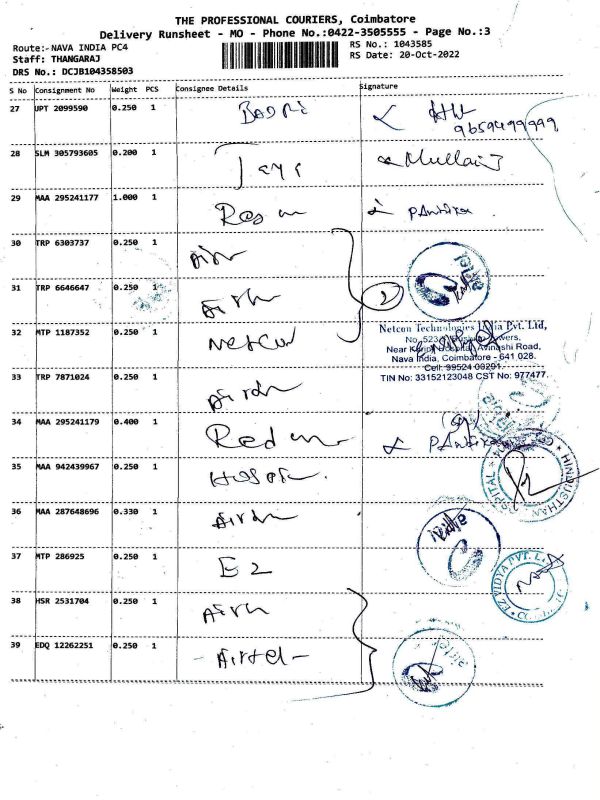 THE PROFESSIONAL COURIERS, Coimbatore
Delivery Runsheet - MO - Phone No.:0422-3505555 - Page No.:3
Route:-NAVA INDIA PC4
RS No.: 1043585
Staff: THANGARAJ
RS Date: 20-Oct-2022
DRS No.: DCJB104358503
S No Consignment No Weight PCS Consignee Details Signature
27 UPT 2099590 0.250 1 Badri
9659499999
28 SLM 305793605 0.200 1 Mullai
29 MAA 295241177 1.000 1
30 TRP 6303737 0.250 1
31 TRP 6646647 0.250 1 2
32 MTP 1187352 0.250 1 Netcon
Netcon Technologies India Pvt. Ltd,
Near Hospital, Avinashi Road,
Nava India, Coimbatore - 641 028.
Cell: 99524 00291
TIN No: 33152123048 CST No: 977477
33 TRP 7871024 0.250 1
34 MAA 295241179 0.400 1
35 MAA 942439967 0.250 1
HINDUSTHAN HOSPITAL
36 MAA 287648696 0.330 1
37 MTP 286925 0.250 1 E2
EZ VIDYA PVT. L
38 HSR 2531704 0.250 1
39 EDQ 12262251 0.250 1 - Airtel -
airtel